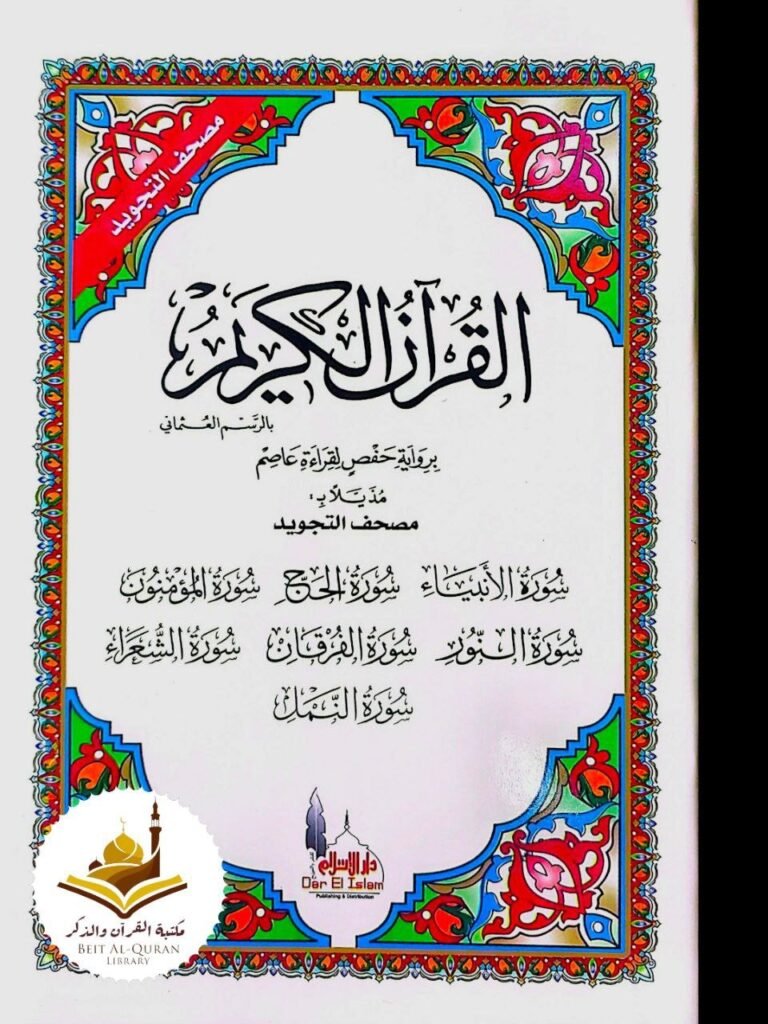 مصحف التجويد
القُرآنُ الكَرِيمُ
بالرَّسْم العُثماني
بِرِوَايَةِ حَفْصٍ لِقِرَاءَةِ عَاصِم
مُذَيَّلًا بِ:
مصحف التجويد
سُورَةُ الأَنبيَاءِ سُورَةُ الحَجِّ سُورَةُ المؤْمنُون
سُورَةُ النُّورِ سُورَةُ الفُرْقَانِ سُورَةُ الشُّعَرَاءِ
سُورَةُ النَّمْلِ
دار الإسلام
Dar El Islam
Publishing & Distribution
مكتبة القرآن والذكر
BEIT AL-QURAN
LIBRARY